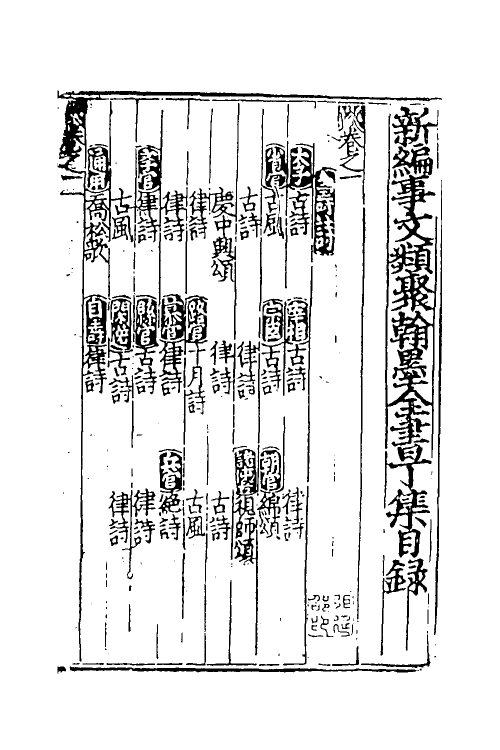 新編事文類聚翰墨大全書丁集目録
卷之一
慶壽詩
太子 古詩 宰相 古詩 律詩
古風 古詩 朝官 錦頌
古詩 律詩 祖師頌
慶中興頌 律詩 古詩
律詩 路官 十月詩 古風
律詩 律詩 兵官 絶詩
律詩 古詩 律詩
古風 古詩 律詩
通用 喬松歌 自壽 律詩
卷之二